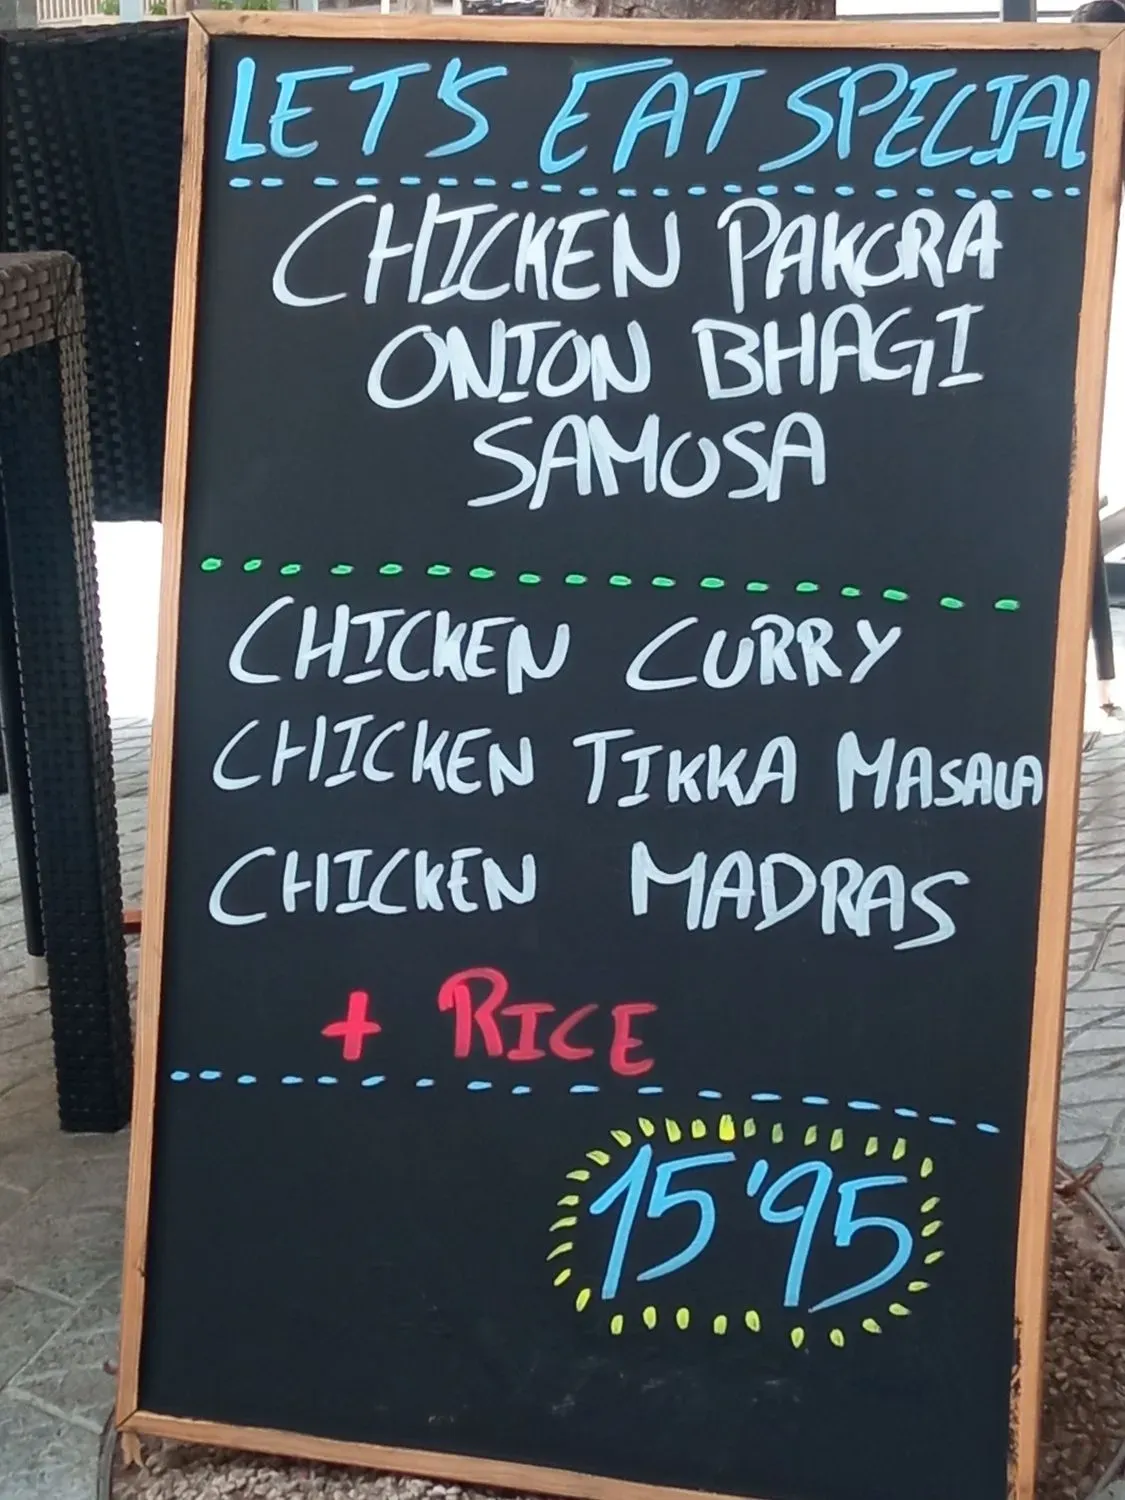 LET'S EAT SPECIAL
CHICKEN PAKORA
ONION BHAGI
SAMOSA
CHICKEN CURRY
CHICKEN TIKKA MASALA
CHICKEN MADRAS
+ RICE
15'95